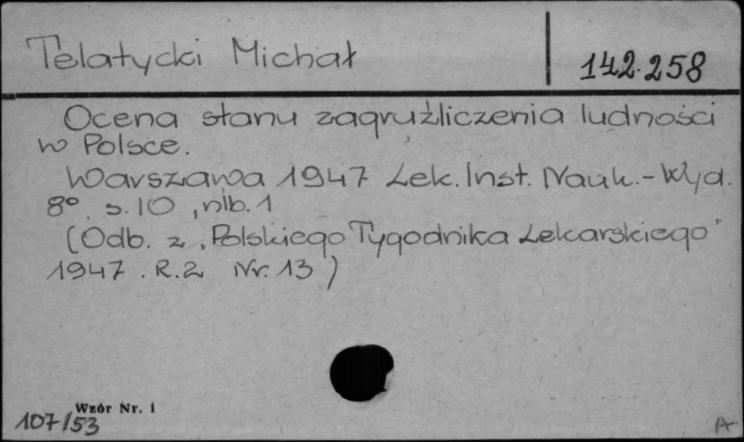 Telatycki Michał
142.258
Ocena stanu zagruźliczenia ludności
w Polsce.
Warszawa 1947 Lek. Inst. Nauk.-Wyd.
8°. s. 10, nlb. 1
(Odb. z „Polskiego Tygodnika Lekarskiego"
1947. R.2 Nr. 13)
Wzór Nr. 1
107/53
A